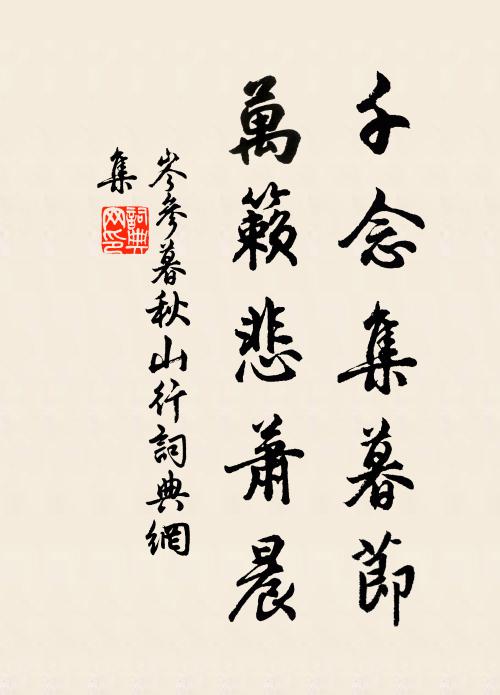 千念集暮節
萬籟悲蕭晨
岑參暮秋山行詞典網
集
詞典
网印